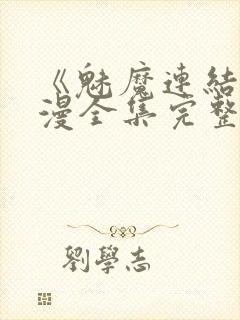 《魅魔連結
漫全集完整
劉學志